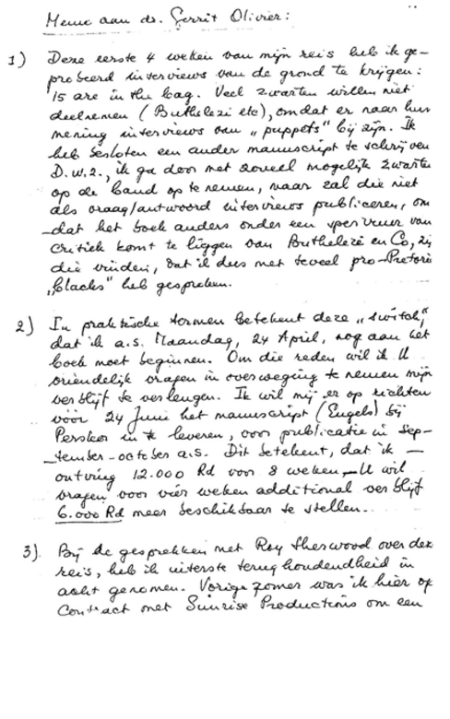 Memo aan dr. Gerrit Olivier:
1) Deze eerste 4 weken van mijn reis heb ik ge-
probeerd interviews van de grond te krijgen:
15 are in the bag. Veel zwarten willen niet
deelnemen (Buthelezi etc), omdat er naar hun
mening interviews van "puppets" bij zijn. Ik
heb besloten een ander manuscript te schrijven
D.w.z., ik ga door met zoveel mogelijk zwarten
op de band op te nemen, maar zal die niet
als vraag/antwoord interviews publiceren, om-
dat het boek anders onder een spervuur van
critiek komt te liggen van Buthelezi en Co, zij
die vinden, dat ik dus met teveel pro-Pretoria
"blacks" heb gesproken.
2) In praktische termen betekent deze "switch,"
dat ik a.s. Maandag, 24 April, nog aan het
boek moet beginnen. Om die reden wil ik U
vriendelijk vragen in overweging te nemen mijn
verblijf te verlengen. Ik wil mij er op richten
vóór 24 Juni het manuscript (Engels) bij
Perskor in te leveren, voor publicatie in Sep-
tember-october a.s. Dit betekent, dat ik —
ontving 12.000 Rd voor 8 weken — U wil
vragen voor vier weken additional verblijf
6.000 Rd meer beschikbaar te stellen.
3). Bij de gesprekken met Roy Sherwood over deze
reis, heb ik uiterste terughoudendheid in
acht genomen. Vorige zomer was ik hier op
contract met Sunrise Productions om een